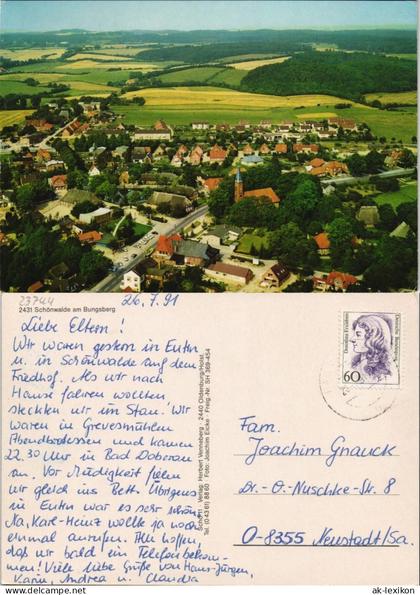 23744
2431 Schönwalde am Bungsberg
26.7.91
Liebe Eltern!
Wir waren gestern in Eutin
u. in Schönwalde auf dem
Friedhof. Als wir nach
Hause fahren wollten,
steckten wir im Stau. Wir
waren in Grevesmühlen
Abendbrotessen und kamen
22.30 Uhr in Bad Doberan
an. Vor Müdigkeit fielen
wir gleich ins Bett. Übrigens
in Eutin war es sehr schön.
Na, Karl-Heinz wollte ja noch
einmal anrufen. Alle hoffen,
daß wir bald ein Telefon bekom-
men! Viele liebe Grüße von Hans-Jürgen,
Karin, Andrea u. Claudia
Verlag: Herbert Venneberg · 2440 Oldenburg/Holst.
Tel. (0 43 61) 88 60 · Foto: Joachim Eicke · Freig.-Nr. SH 369-454
Deutsche Bundespost
60
Fam.
Joachim Gnauck
Dr.-O.-Nuschke-Str. 8
O-8355 Neustadt/Sa.
© www.ak-lexikon.com